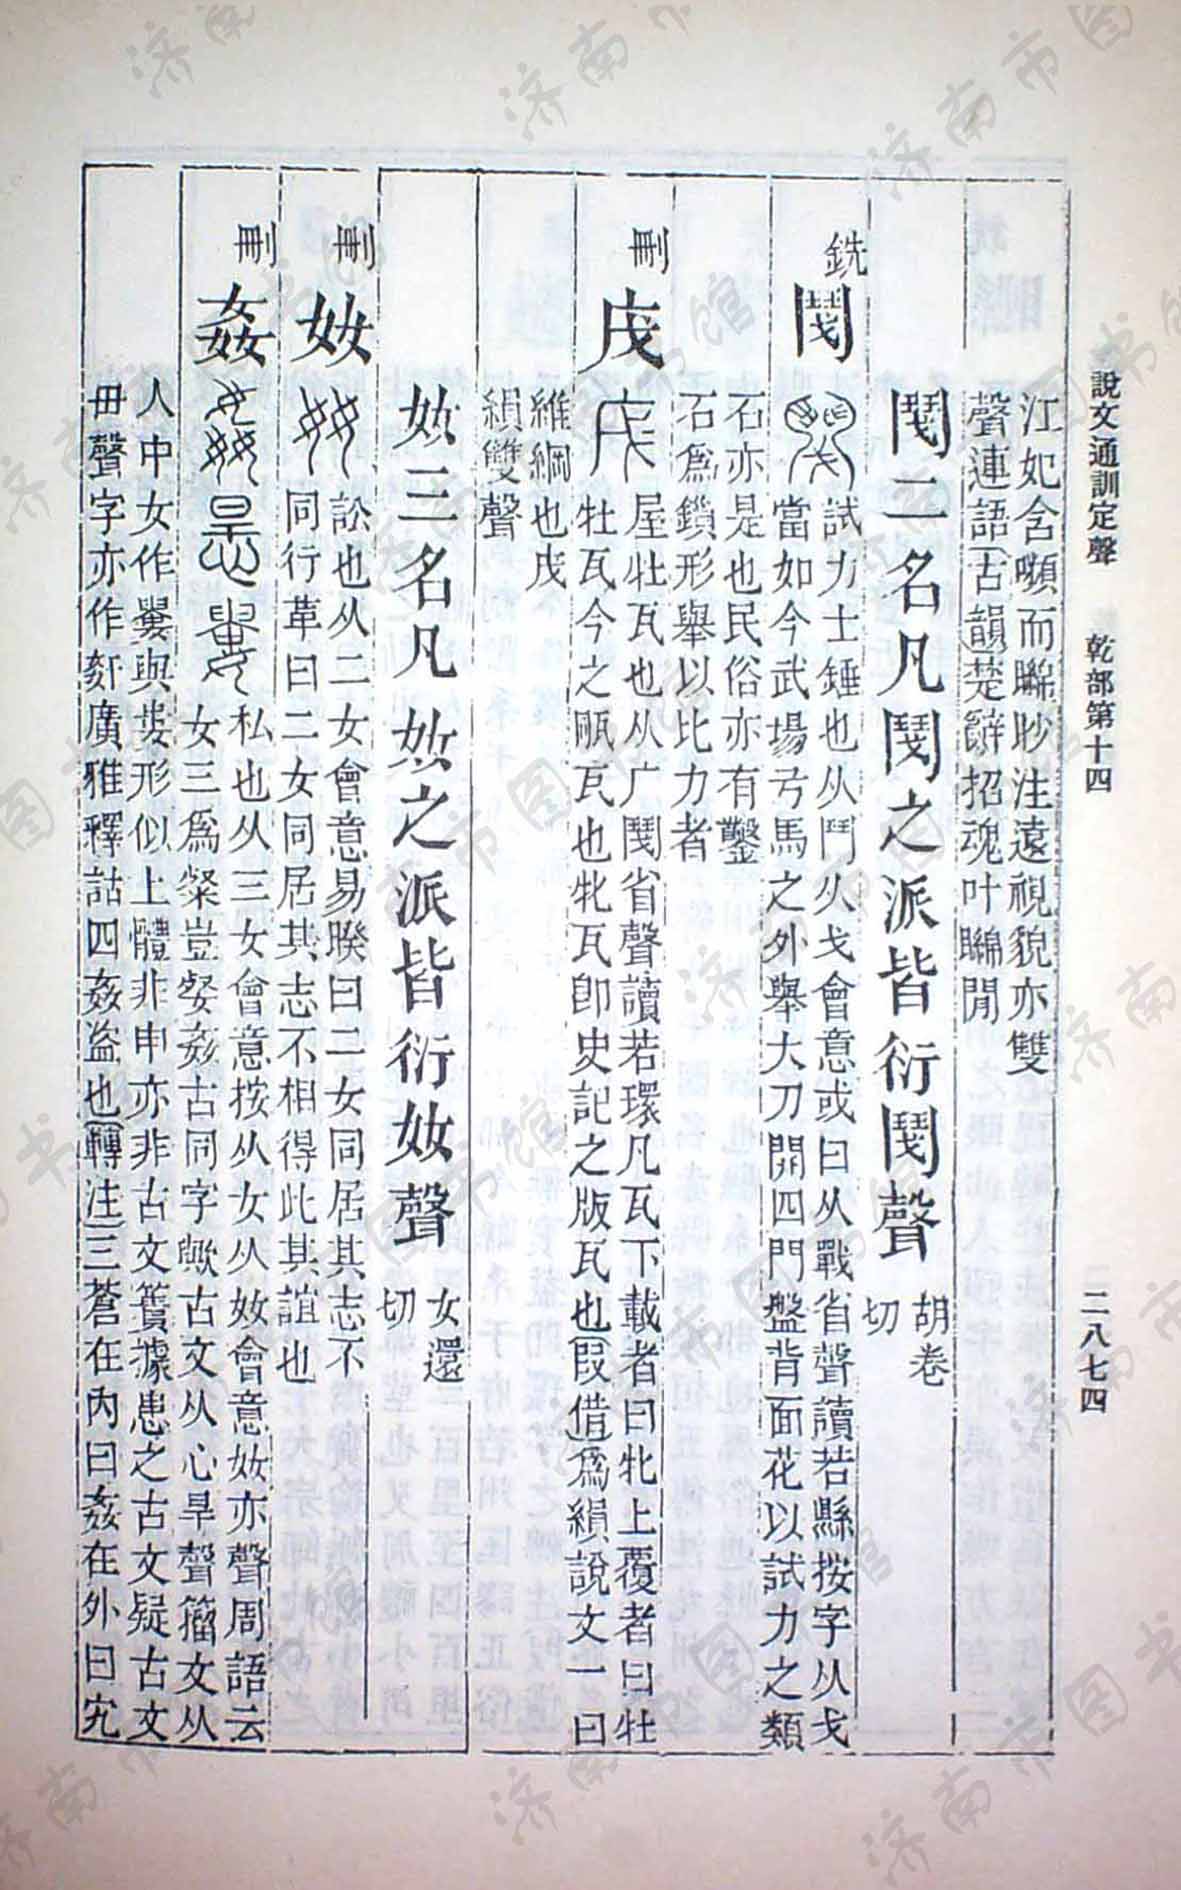 說文通訓定聲　乾部第十四　二八七四
江妃含嚬而聯眇注遠視貌亦雙
聲連語古韻楚辭招魂叶聯閒
䦧二名凡䦧之派皆衍䦧聲
胡卷
切
銑
䦧
試力士錘也从鬥从戈會意或曰从戰省聲讀若縣按字从戈
當如今武場弓馬之外舉大刀開四門盤背面花以試力之類
石亦是也民俗亦有鑿
石爲鎖形舉以比力者
刪
戌
屋牡瓦也从广䦧省聲讀若環凡瓦下載者曰牝上覆者曰牡
牡瓦今之甋瓦也牝瓦卽史記之版瓦也假借爲縜說文一曰
維綱也戌
縜雙聲
奻三名凡奻之派皆衍奻聲
女還
切
刪
奻
訟也从二女會意易睽曰二女同居其志不
同行革曰二女同居其志不相得此其誼也
刪
姦
私也从三女會意按从女从奻會意奻亦聲周語云
女三爲粲豈㛑姦古同字歟古文从心旱聲籀文从
人中女作㚻與婁形似上體非申亦非古文蕢據患之古文疑古文
毌聲字亦作奸廣雅釋詁四姦盜也轉注三蒼在內曰姦在外曰宄